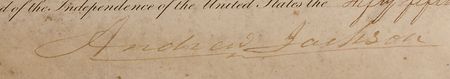 d of the Independence of the United States the fifty fifth
Andrew Jackson